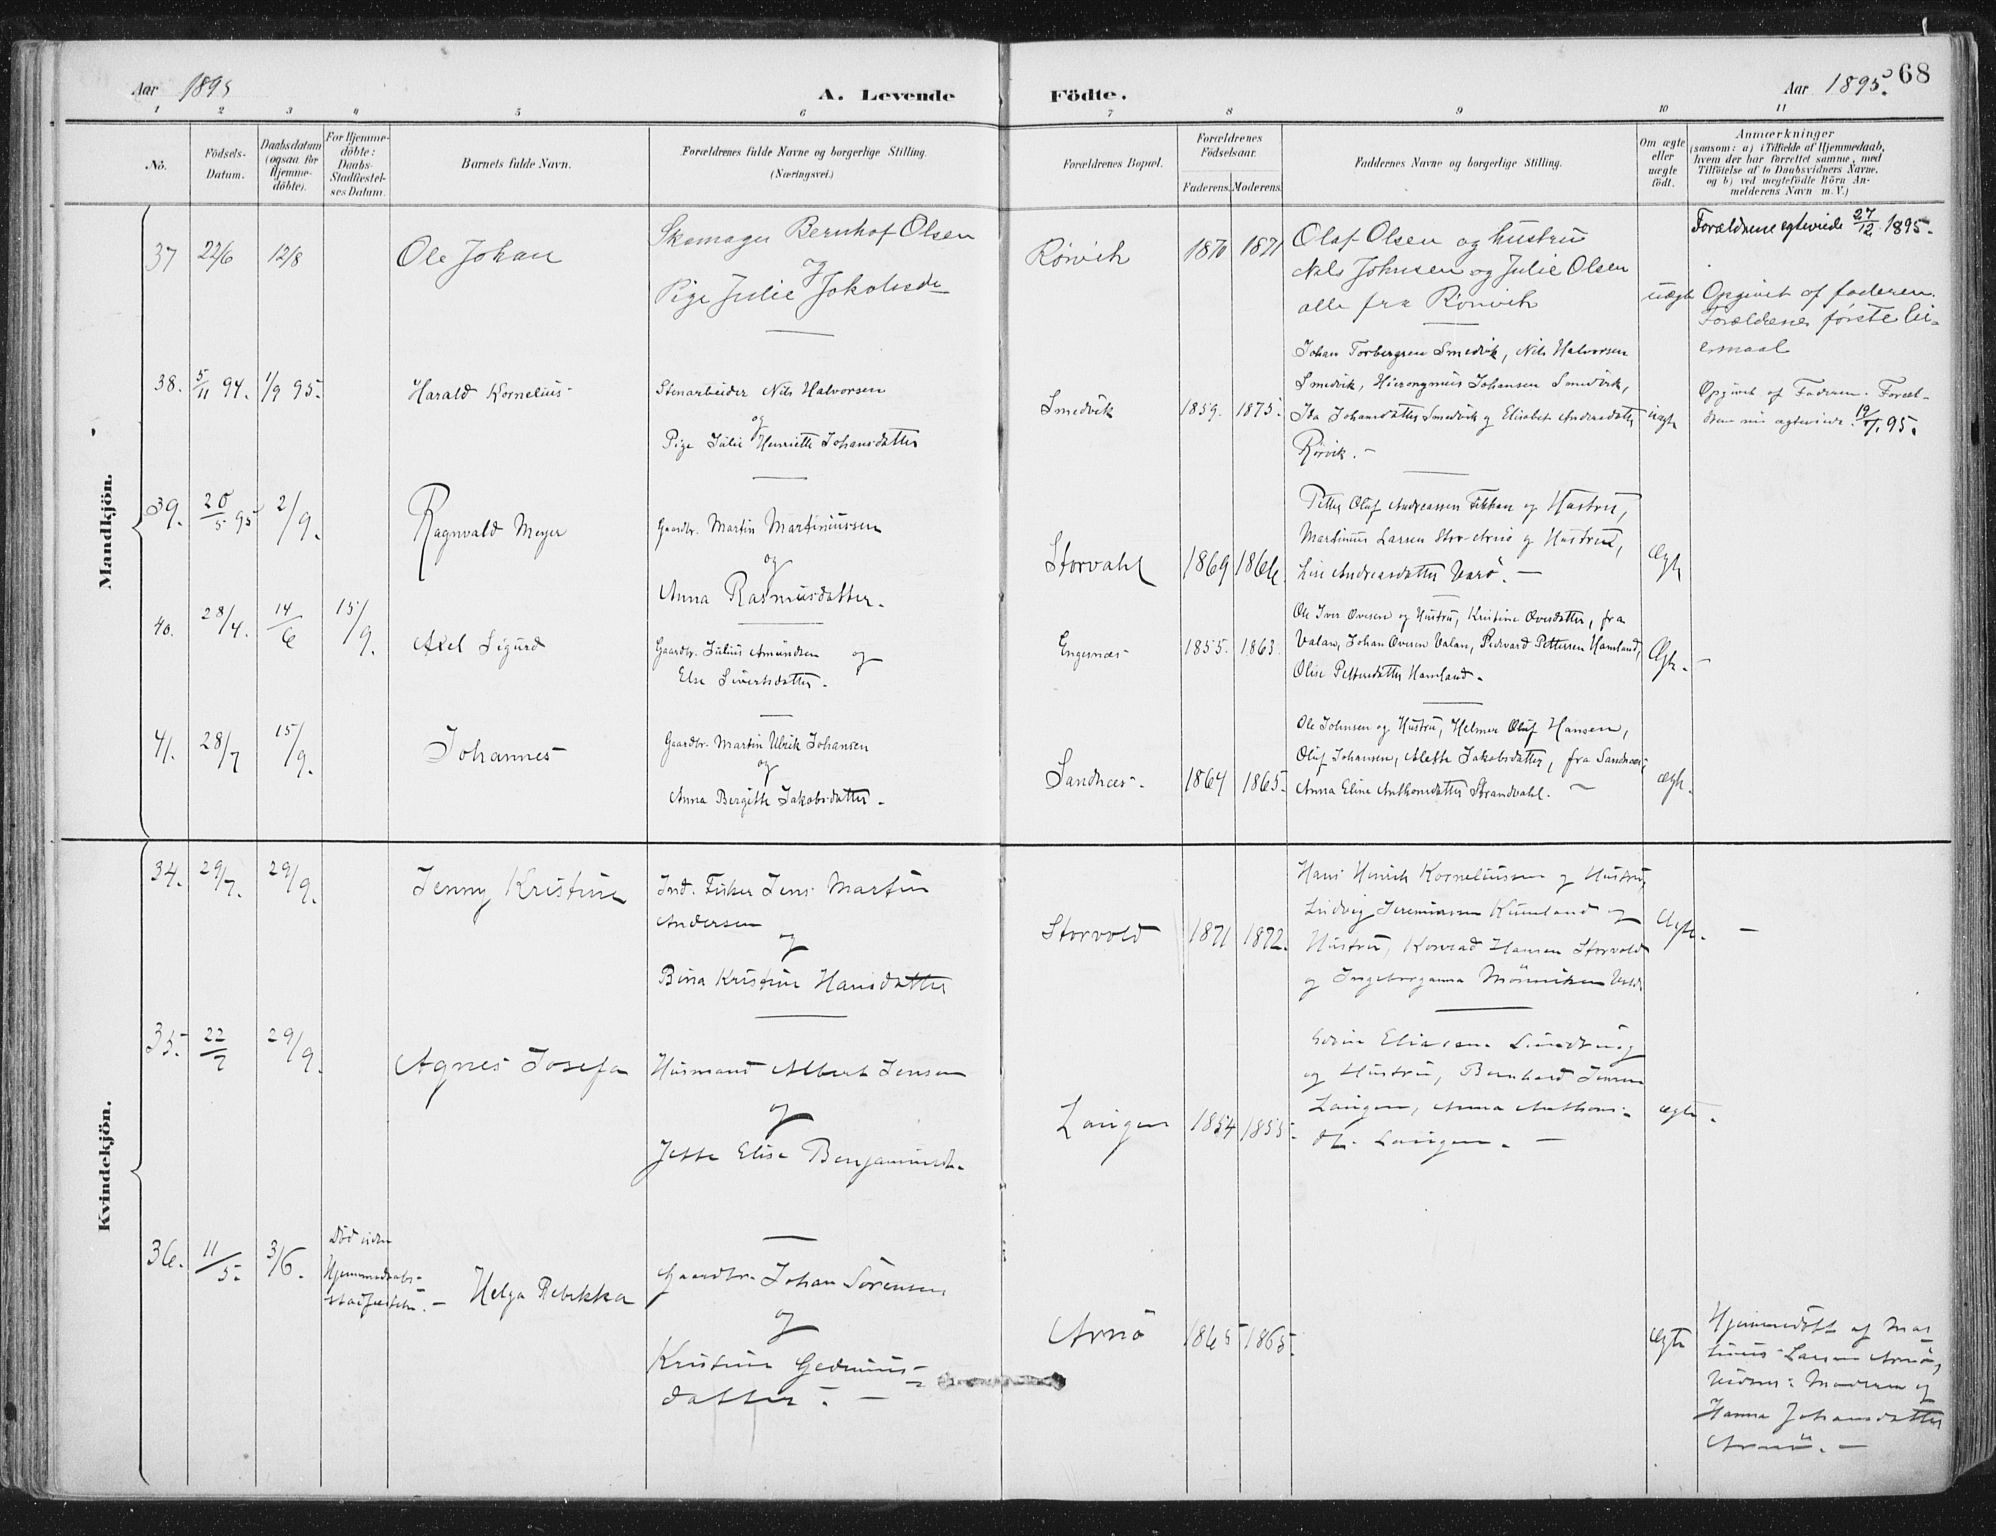 68
Aar 1895
A. Levende Födte.
Aar 1895.
1 2 3 4 5 6 7 8 9 10 11
No.
Födsels-
Datum.
Daabsdatum
(ogsaa for
Hjemme-
döbte).
For Hjemme-
döbte:
Daabs-
Stadfæstel-
ses Datum.
Barnets fulde Navn.
Forældrenes fulde Navne og borgerlige Stilling.
(Næringsvei.)
Forældrenes Bopæl.
Forældrenes
Födselsaar.
Faderens. Moderens.
Faddernes Navne og borgerlige Stilling.
Om ægte
eller
uægte
födt.
Anmærkninger
(saasom: a) i Tilfælde af Hjemmedaab,
hvem der har forrettet samme, med
Tilföielse af to Daabsvidners Navne,
og b) ved uægtefödte Börn An-
melderens Navn m. V.)
Mandkjön.
37 22/6 12/8
Ole Johan
Skomager Bernhof Olsen
og
Pige Julie Jakobsd.
Rørvik 1870 1871
Olaf Olsen og hustru
Nils Johnsen og Julie Olsen
alle fra Rørvik
uægte
Forældrene egteviede 27/12 1895.
Opgivet af faderen.
Forældrenes første lei-
ermaal
38. 5/11 94. 1/9 95.
Harald Kornelius
Stenarbeider Nils Halvorsen
og
Pige Julie Henriette Johansdatter
Smedvik 1859. 1875.
Johan Torbergsen Smedvik, Nils Halvorsen
Smedvik, Hieronymus Johansen Smedvik,
Ida Johansdatter Smedvik og Elisabet Andersdatter
Rørvik. –
uægte
Opgivet af Faderen. Foræl-
drene nu ægteviede. 19/7. 95.
39. 20/5 95 2/9.
Ragnvald Meyer
Gaardbr. Martin Martinussen
og
Anna Rasmusdatter.
Storvahl 1869 1866
Petter Olaf Andreassen Fikkan og Hustru,
Martinus Larsen Stor-Arnö og Hustru,
Lise Andreasdatter Varö. –
Ægte
40. 28/4. 14/6 15/9.
Axel Sigurd
Gaardbr. Julius Amundsen og
Else Sivertsdatter.
Engesnæs 1855. 1863.
Ole Iver Ovesen og Hustru, Kristine Ovesdatter, fra
Valan, Johan Ovesen Valan, Pedvard Pettersen Hamland,
Olise Pettersdatter Hamland.
Ægte. –
41. 28/7 15/9.
Johannes
Gaardbr. Martin Ulrik Johansen
og
Anna Bergitte Jakobsdatter.
Sandnæs. 1864 1865.
Ole Johnsen og Hustru, Helmer Oluf Hansen,
Oluf Johansen, Alette Jakobsdatter, fra Sandnæs,
Anna Eline Anthonsdatter Strandvahl. –
ægte.
Kvindekjön.
34. 29/7. 29/9.
Jenny Kristine
Ind. Fisker Jens Martin
Andersen
og
Bina Kristine Hansdatter
Storvold 1871 1872.
Hans Henrik Korneliussen og Hustru,
Ludvig Jeremiassen Kumland og
Hustru, Konrad Hansen Storvold
og Ingeborganna
Ægte. –
35. 22/7 29/9.
Agnes Josefa
Husmand Albert Jensen
og
Jette Elise Benjaminsd.
Laugen 1854 1855.
og Hustru, Bernhard Jensen
Laugen, Anna Anthons-
dt. Laugen. –
ægte.
36. 11/5. 3/6.
Död uden
Hjemmedaabs-
stadfæstelse. –
Helga Rebekka
Gaardbr. Johan Sörensen
og
Kristine
datter. –
Arnö 1865 1865.
ægte
Hjemmedöbt af Mar-
tinus Larsen Arnö,
Vidner: Moderen og
Hanna Johansdatter
Arnö. –